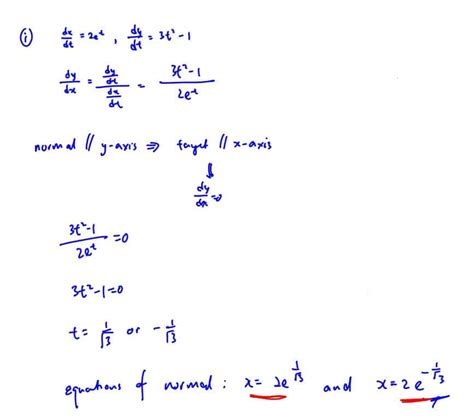 (i) dx/dt = 2e^t , dy/dt = 3t² - 1
dy/dx = (dy/dt)/(dx/dt) = (3t² - 1)/(2e^t)
normal // y-axis ⇒ tanget // x-axis
⇓
dy/dx = 0
(3t² - 1)/(2e^t) = 0
3t² - 1 = 0
t = 1/√3 or - 1/√3
equations of normal : x = 2e^(1/√3) and x = 2e^(-1/√3)